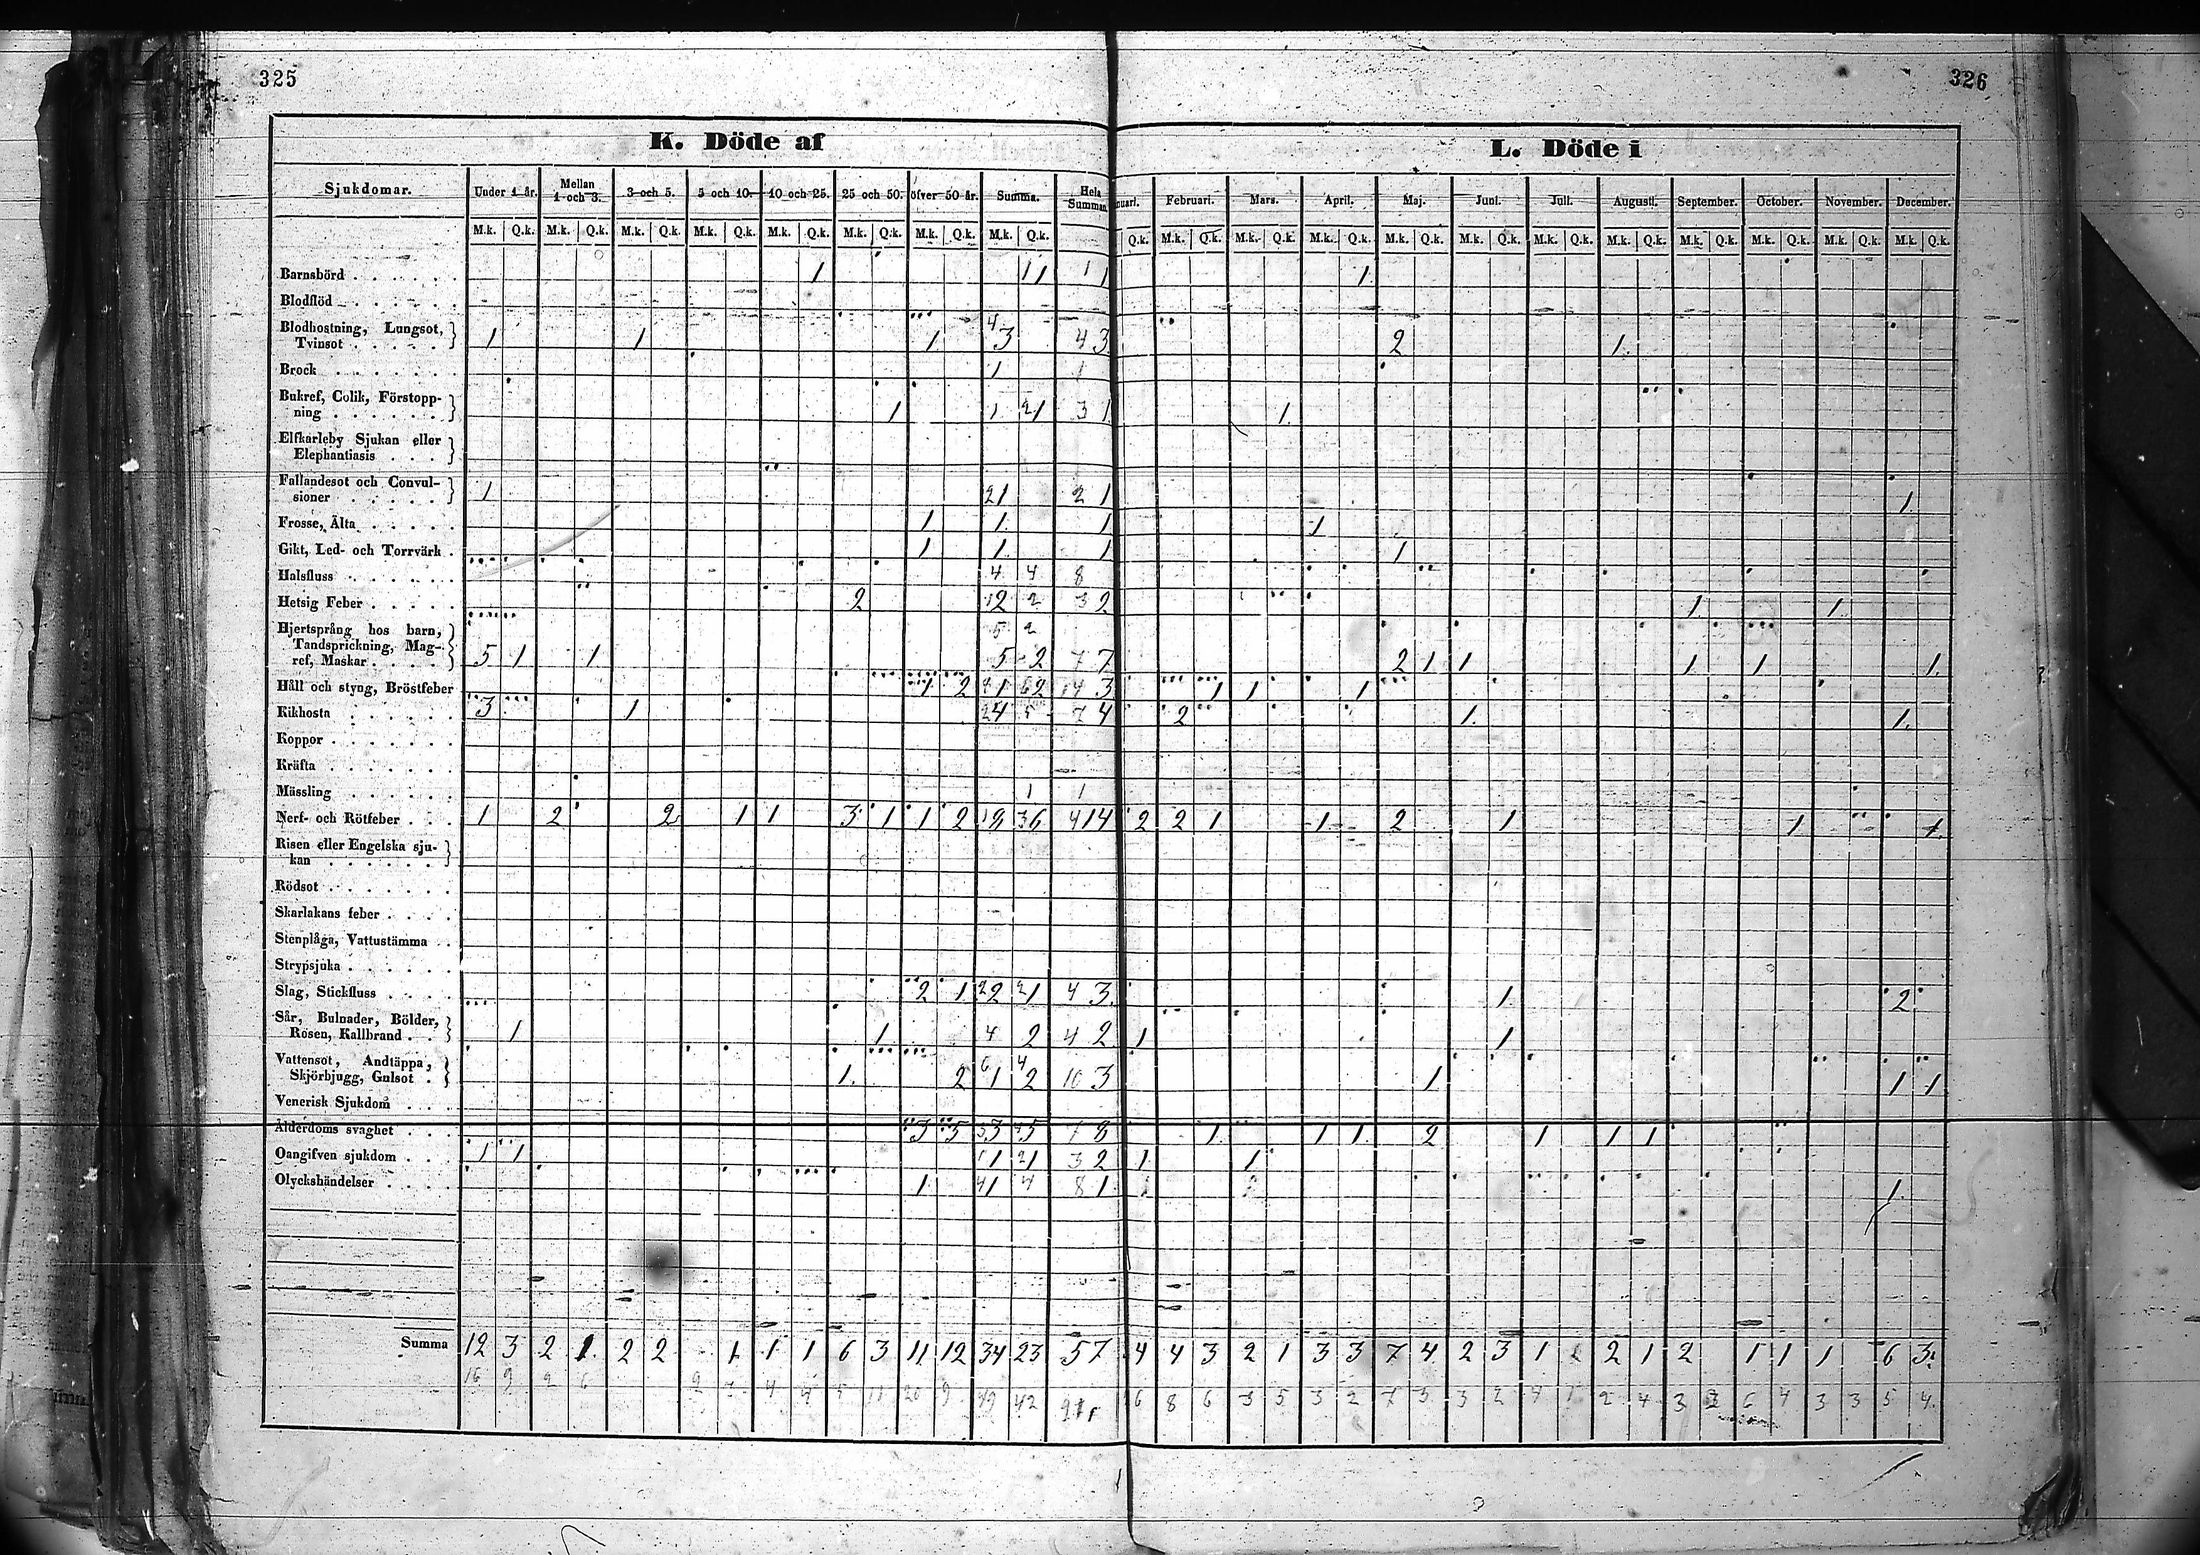 325
326
K. Döde af
L. Döde i
Sjukdomar. Under 1 år. Mellan 1 och 3. 3 och 5. 5 och 10. 10 och 25. 25 och 50. öfver 50 år. Summa. Hela Summan
nuari. Februari. Mars. April. Maj. Juni. Juli. Augusti. September. October. November. December.
M.k. Q.k. M.k. Q.k. M.k. Q.k. M.k. Q.k. M.k. Q.k. M.k. Q.k. M.k. Q.k. M.k. Q.k.
Q.k. M.k. Q.k. M.k. Q.k. M.k. Q.k. M.k. Q.k. M.k. Q.k. M.k. Q.k. M.k. Q.k. M.k. Q.k. M.k. Q.k. M.k. Q.k. M.k. Q.k.
Barnsbörd 1 1 1 1 1 1
Blodflöd
Blodhostning, Lungsot,
Tvinsot 1 1 1 4 3 4 3 2 1
Brock 1 1
Bukref, Colik, Förstopp-
ning 1 1 2 1 3 1 1
Elfkarleby Sjukan eller
Elephantiasis
Fallandesot och Convul-
sioner 1 2 1 2 1 1
Frosse, Älta 1 1 1 1
Gikt, Led- och Torrvärk 1 1 1 1
Halsfluss 4 4 8
Hetsig Feber 2 1 2 2 3 2 1 1
Hjertsprång hos barn, 5 2
Tandsprickning, Mag-
ref, Maskar 5 1 1 5 2 7 7 2 1 1 1 1 1
Håll och styng, Bröstfeber 1 2 1 6 2 14 3 1 1 1
Kikhosta 3 1 2 4 5 7 4 2 1 1
Koppor
Kräfta
Mässling 1 1
Nerf- och Rötfeber 1 2 2 1 1 3 1 1 2 1 8 3 6 4 14 2 2 1 1 2 1 1 1
Risen eller Engelska sju-
kan
Rödsot
Skarlakans feber
Stenplåga, Vattustämma
Strypsjuka
Slag, Stickfluss 2 1 2 2 2 1 4 3 1 2
Sår, Bulnader, Bölder,
Rosen, Kallbrand 1 1 4 2 4 2 1 1
Vattensot, Andtäppa, 6 4
Skjörbjugg, Gulsot 1 2 1 2 10 3 1 1 1
Venerisk Sjukdom
Ålderdoms svaghet 3 5 3 3 4 5 7 8 1 1 1 2 1 1 1
Oangifven sjukdom 1 1 1 1 2 1 3 2 1 1
Olyckshändelser 1 4 1 4 8 1 1
Summa 12 3 2 1 2 2 1 1 1 6 3 11 12 34 23 57 4 4 3 2 1 3 3 7 4 2 3 1 2 1 2 1 1 1 6 3
16 9 2 6 2 7 4 4 5 11 20 9 49 42 91 6 8 6 3 5 3 2 7 3 3 2 4 1 2 4 3 2 6 4 3 3 5 4